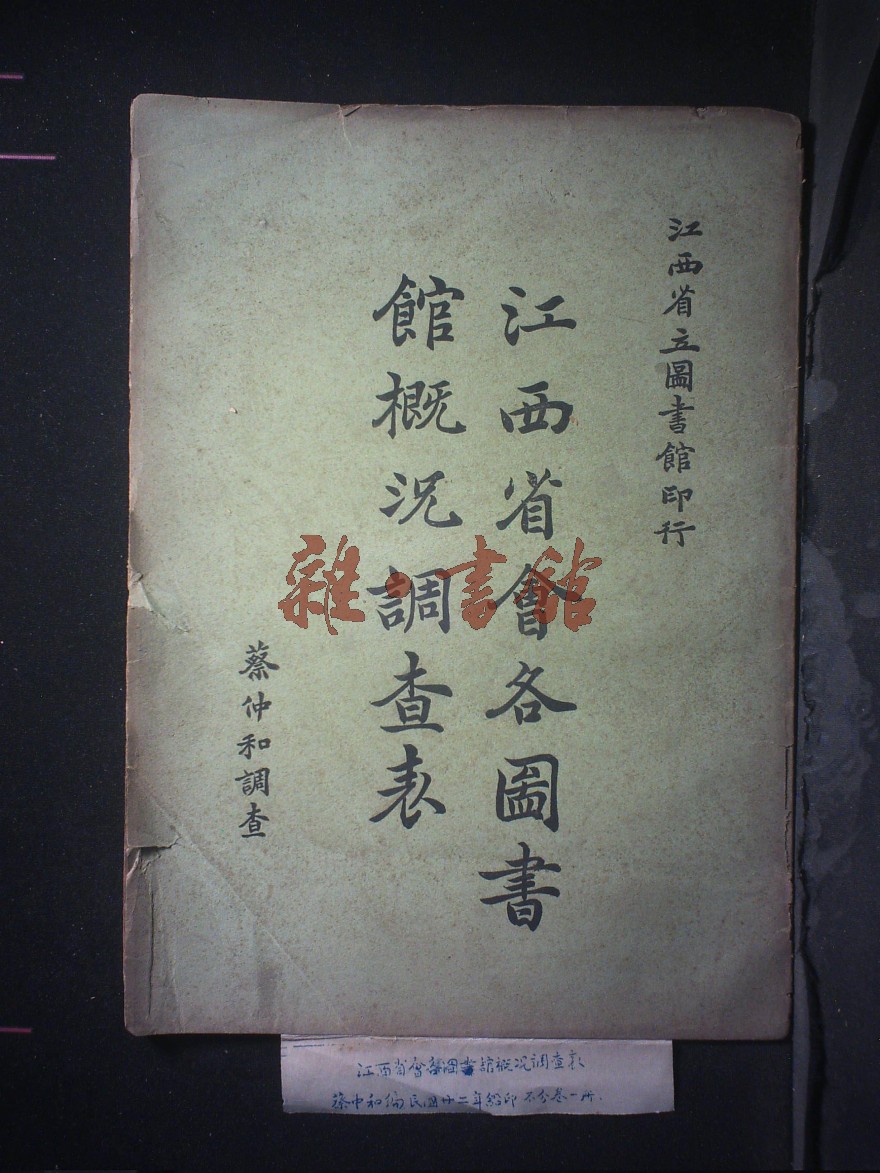 江西省立圖書館印行
江西省會各圖書
館概況調查表
蔡仲和調查
雜·書館
江西省會各图書館概况調查表
蔡中和编民国廿二年铅印不分卷一册.